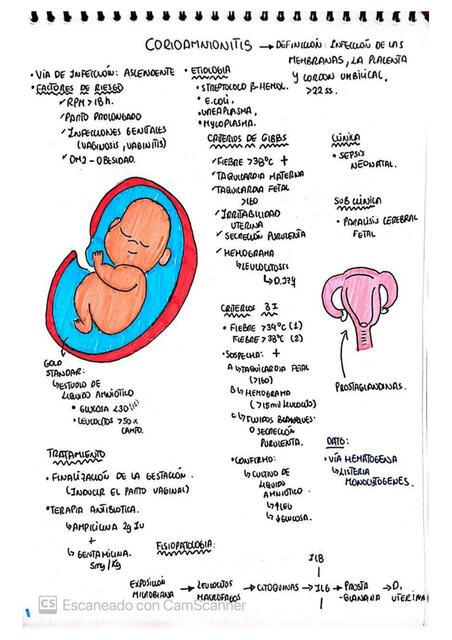 CORIOAMNIONITIS → DEFINICIÓN: INFECCIÓN DE LAS
MEMBRANAS, LA PLACENTA
Y CORDON UMBILICAL.
>22 ss.
• VIA DE INFECCIÓN: ASCENDENTE
• FACTORES DE RIESGO
✓ RPM > 18 h.
✓ PARTO PROLONGADO
✓ INFECCIONES GENITALES
(VAGINOSIS, VAGINITIS)
✓ DM2 - OBESIDAD.
• ETIOLOGIA
• STREPTOCOCO β-HEMOL.
• E.COLI.
• UREAPLASMA,
• MYCOPLASMA.
CRITERIOS DE GIBBS
✓ FIEBRE >38°C +
✓ TAQUICARDIA MATERNA
✓ TAQUICARDIA FETAL
>160
✓ IRRITABILIDAD
UTERINA
✓ SECRECIÓN PURULENTA
✓ HEMOGRAMA
↳ LEUCOCITOSIS
CLINICA
• SEPSIS
NEONATAL.
SUB CLINICA
• PARALISIS CEREBRAL
FETAL
CRITERIOS 3I
• FIEBRE >39°C (1)
FIEBRE >38°C (2)
• SOSPECHA: +
A ↳ TAQUICARDIA FETAL
(>160)
B ↳ HEMOGRAMA
(>15mil LEUCOCITO)
C ↳ FLUIDOS BLANQUEC.
O SECRECIÓN
PURULENTA.
• CONFIRMO:
↳ CULTIVO DE
LIQUIDO
AMNIOTICO.
↳ ↑LEU
↳ ↓GLUCOSA.
PROSTAGLANDINAS.
DATO:
• VÍA HEMATOGENA
↳ LISTERIA
MONOCYTOGENES.
GOLD
STANDAR:
↳ ESTUDIO DE
LIQUIDO AMNIOTICO
• GLUCOSA <30
• LEUCOCITOS >50 x
CAMPO.
TRATAMIENTO
• FINALIZACIÓN DE LA GESTACIÓN.
(INDUCIR EL PARTO VAGINAL)
• TERAPIA ANTIBIOTICA.
↳ AMPICILINA 2g IV
+
↳ GENTAMICINA.
5mg/Kg
FISIOPATOLOGIA:
EXPOSICIÓN
MICROBIANA → LEUCOCITOS
MACROFAGOS → CITOQUINAS → IL6 → PROSTA
-GLANDINA → UTERINA
IL8
CS Escaneado con CamScanner